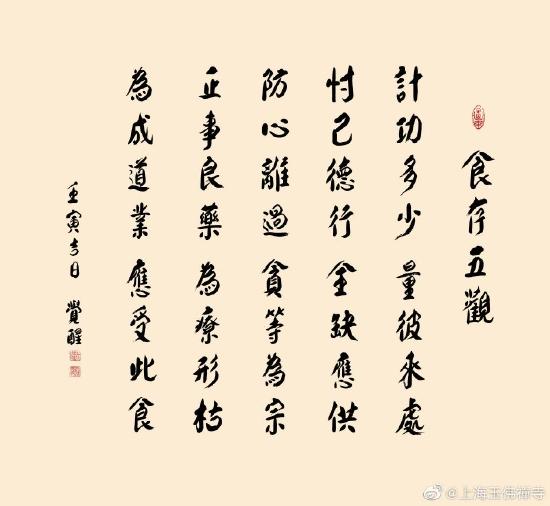 食存五觀
計功多少 量彼來處
忖己德行 全缺應供
防心離過 貪等為宗
正事良藥 為療形枯
為成道業 應受此食
壬寅吉日 覺醒
@上海玉佛禅寺